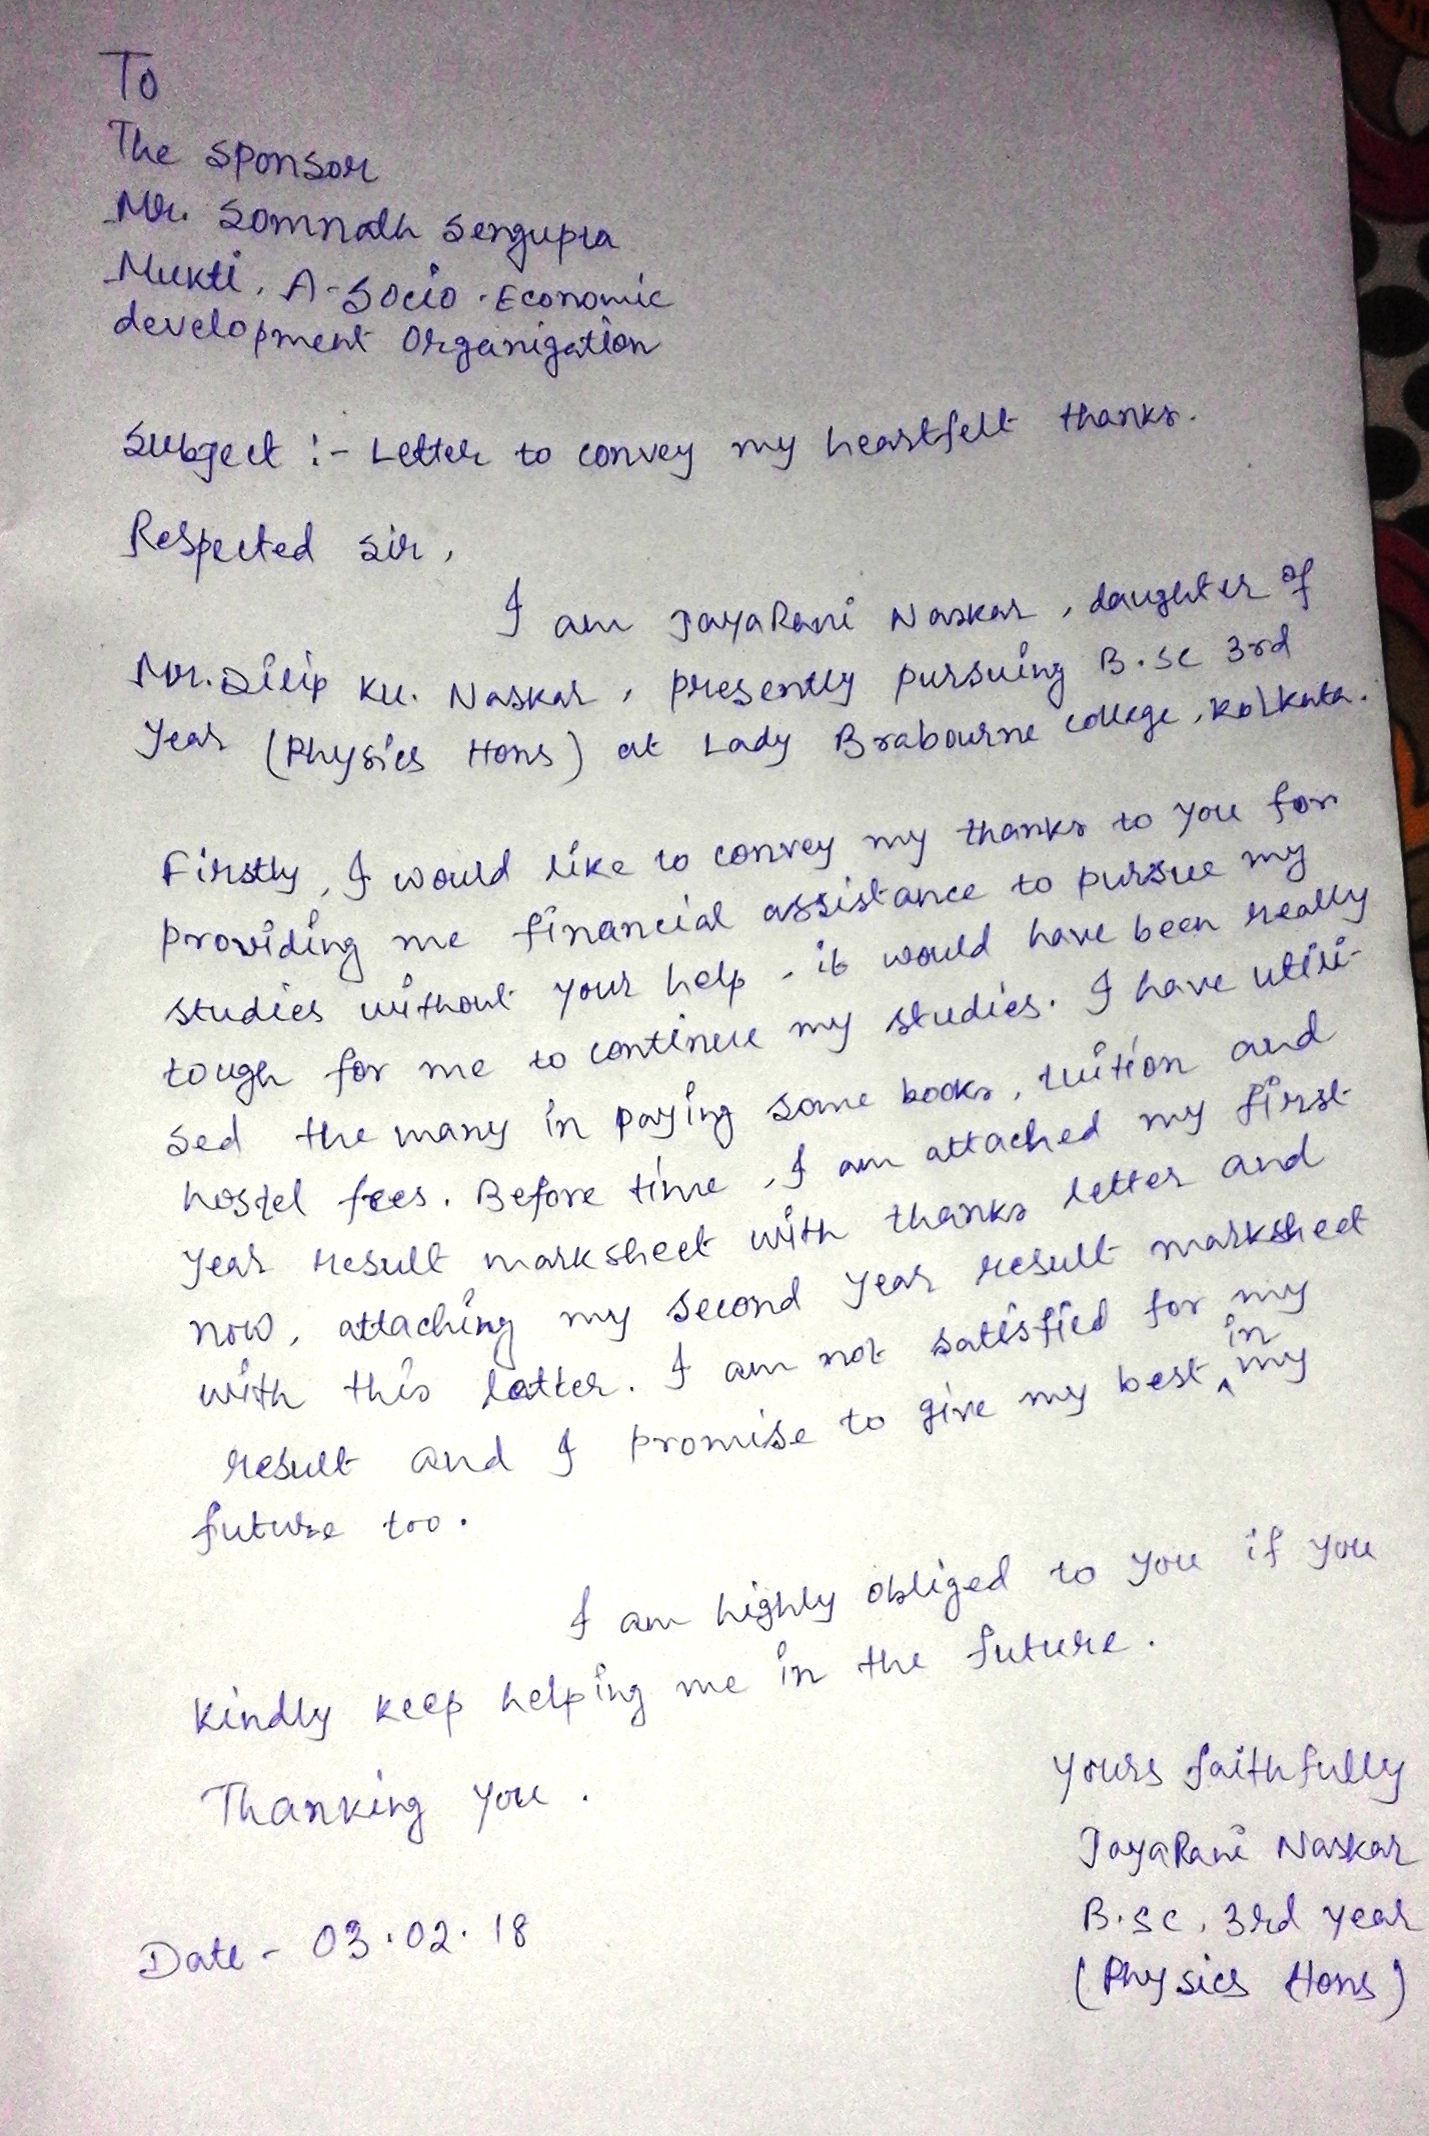 To
The sponsor
Mr. Somnath Sengupta
Mukti, A-Socio-Economic
development Organigation
Subject :- Letter to convey my heartfelt thanks.
Respected sir,
I am JayaRani Naskar, daughter of
Mr. Dilip Ku. Naskar, presently pursuing B.Sc 3rd
Year (Physics Hons) at Lady Brabourne College, Kolkata.
Firstly, I would like to convey my thanks to you for
providing me financial assistance to pursue my
studies without your help, it would have been really
tough for me to continue my studies. I have utili-
sed the many in paying some books, tuition and
hostel fees. Before time, I am attached my first
year result marksheet with thanks letter and
now, attaching my second year result marksheet
with this latter. I am not satisfied for my
result and I promise to give my best in my
future too.
I am highly obliged to you if you
kindly keep helping me in the future.
Thanking you.
Yours faithfully
JayaRani Naskar
B.Sc, 3rd year
(Physics Hons)
Date - 03.02.18